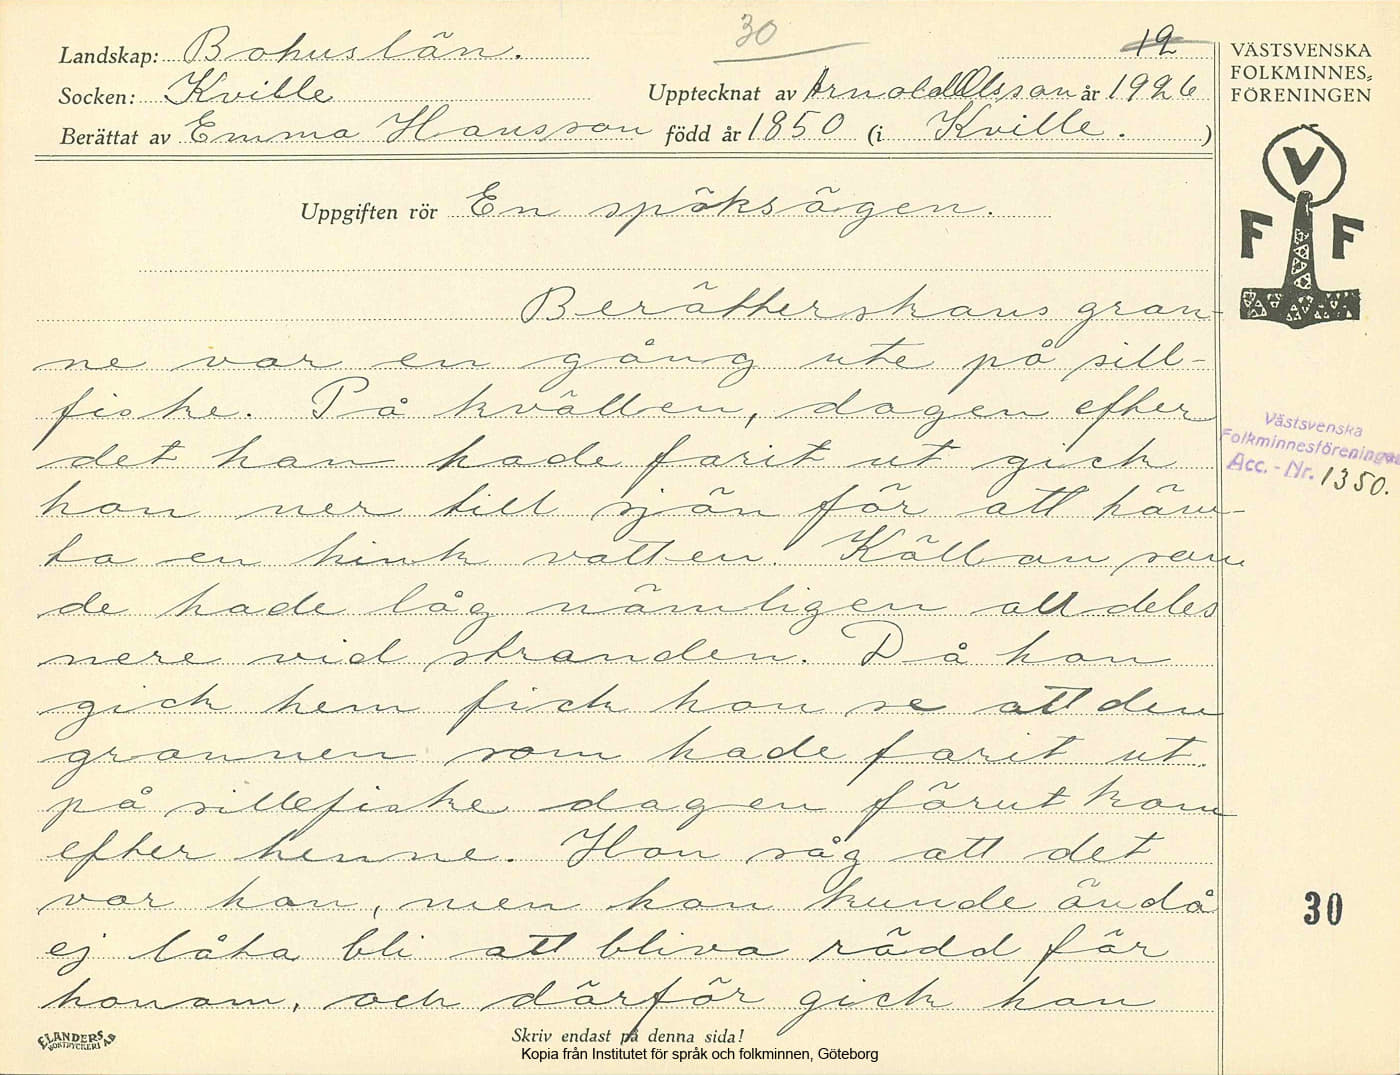 30
12
Landskap: Bohuslän.
Socken: Kville
Upptecknat av Arnold Olsson år 1926
Berättat av Emma Hansson född år 1850 (i Kville. )
VÄSTSVENSKA
FOLKMINNES-
FÖRENINGEN
V
F F
Uppgiften rör En spöksägen.
Berätterskans gran-
ne var en gång ute på sill-
fiske. På kvällen, dagen efter
det han hade farit ut gick
hon ner till sjön för att häm-
ta en hink vatten. Källan som
de hade låg nämligen alldeles
nere vid stranden. Då hon
gick hem fick hon se att den
grannen som hade farit ut
på sillefiske dagen förut kom
efter henne. Hon såg att det
var han, men hon kunde ändå
ej låta bli att bliva rädd för
honom, och därför gick hon
Västsvenska
Folkminnesföreningen
Acc.-Nr. 1350.
30
ELANDERS
BOKTRYCKERI AB
Skriv endast på denna sida!
Kopia från Institutet för språk och folkminnen, Göteborg